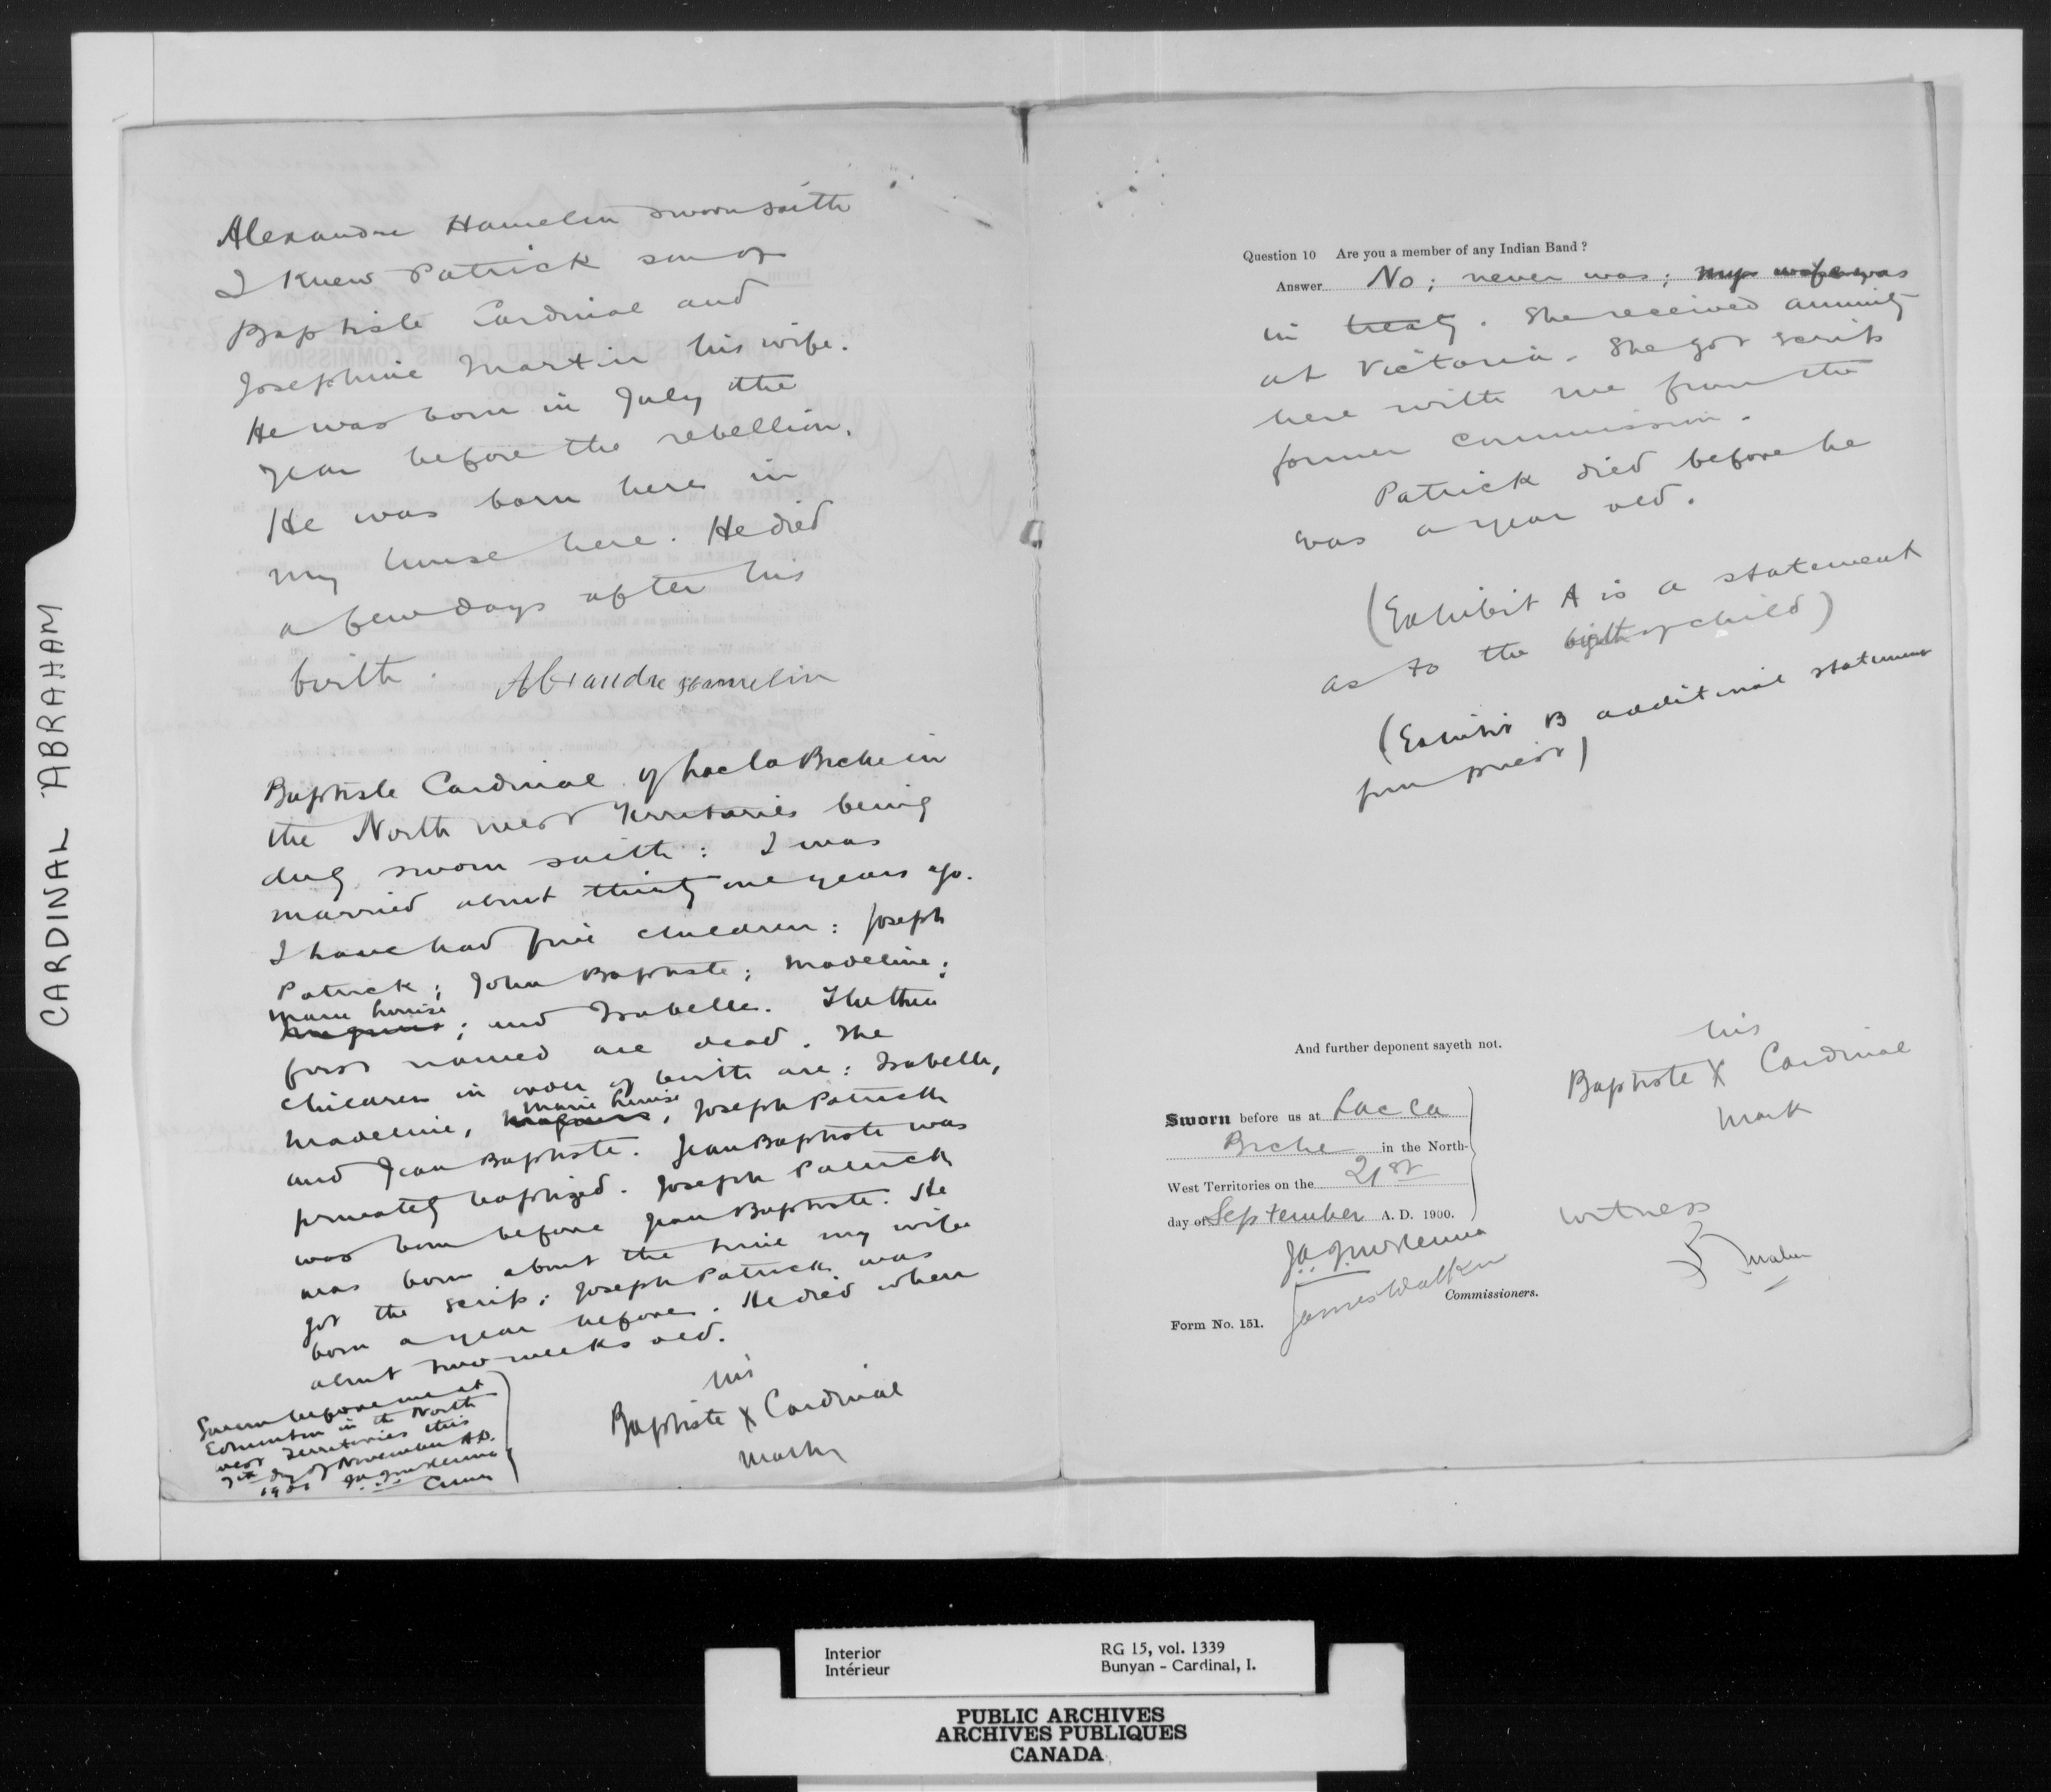 CARDINAL ABRAHAM
Alexandre Hamelin sworn saith
I knew Patrick son of
Baptiste Cardinal and
Josephine Martin his wife.
He was born in July the
year before the rebellion.
He was born here in
my house here. He died
a few days after his
birth.
Alexandre Hamelin
Baptiste Cardinal of Lac la Biche in
the North West Territories being
duly sworn saith: I was
married about thirty one years ago.
I have had five children: Joseph
Patrick; John Baptiste; Madeline;
Marie Louise
; and Isabelle. The three
first named are dead. The
children in order of birth are: Isabelle,
Marie Louise
Madeline, , Joseph Patrick
and Jean Baptiste. Jean Baptiste was
privately baptized. Joseph Patrick
was born before Jean Baptiste. He
was born about the time my wife
got the scrip; Joseph Patrick was
born a year before. He died when
about two weeks old.
his
Baptiste X Cardinal
mark
Sworn before me at
Edmonton in the North
West Territories this
7th day of November A.D.
J.A.J. McKenna
Question 10 Are you a member of any Indian Band ?
Answer No; never was; my wife was
in treaty. She received annuity
at Victoria. She got scrip
here with me from the
former commission.
Patrick died before he
was a year old.
(Exhibit A is a statement
as to the birth of child)
(Exhibit B additional statement
from priest)
And further deponent sayeth not.
his
Baptiste X Cardinal
mark
Sworn before us at Lac La
Biche in the North-
West Territories on the 21st
day of September A. D. 1900.
J.A.J. McKenna
James Walker
Commissioners.
witness
Form No. 151.
Interior
Intérieur
RG 15, vol. 1339
Bunyan - Cardinal, I.
PUBLIC ARCHIVES
ARCHIVES PUBLIQUES
CANADA